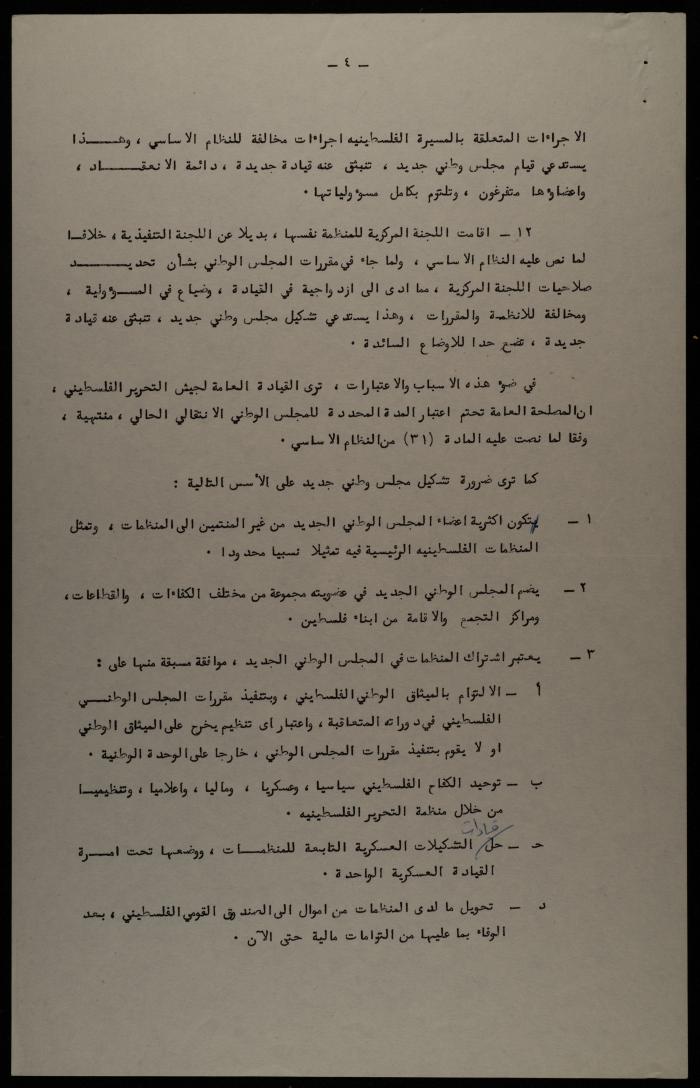 - ٤ -
الاجراءات المتعلقة بالمسيرة الفلسطينيه اجراءات مخالفة للنظام الاساسي ، وهـــذا
يستدعي قيام مجلس وطني جديد ، تنبثق عنه قيادة جديدة ، دائمة الانعقـــاد ،
واعضاؤها متفرغون ، وتلتزم بكامل مسؤولياتها .
١٢ - اقامت اللجنة المركزية للمنظمة نفسها ، بديلا عن اللجنة التنفيذية ، خلافـا
لما نص عليه النظام الاساسي ، ولما جاء في مقررات المجلس الوطني بشأن تحديـــد
صلاحيات اللجنة المركزية ، مما ادى الى ازدواجية في القيادة ، وضياع في المسـؤولية ،
ومخالفة للانظمة والمقررات ، وهذا يستدعي تشكيل مجلس وطني جديد ، تنبثق عنه قيادة
جديدة ، تضع حدا للاوضاع السائدة .
في ضوء هذه الاسباب والاعتبارات ، ترى القيادة العامة لجيش التحرير الفلسطيني ،
ان المصلحة العامة تحتم اعتبار المدة المحددة للمجلس الوطني الانتقالي الحالي ، منتهية ،
وفقا لما نصت عليه المادة (٣١) من النظام الاساسي .
كما ترى ضرورة تشكيل مجلس وطني جديد على الأسس التالية :
١ - يتكون اكثرية اعضاء المجلس الوطني الجديد من غير المنتمين الى المنظمات ، وتمثل
المنظمات الفلسطينيه الرئيسية فيه تمثيلا نسبيا محدودا .
٢ - يضم المجلس الوطني الجديد في عضويته مجموعة من مختلف الكفاءات ، والقطاعات ،
ومراكز التجمع والاقامة من ابناء فلسطين .
٣ - يعتبر اشتراك المنظمات في المجلس الوطني الجديد ، موافقة مسبقة منها على :
أ - الالتزام بالميثاق الوطني الفلسطيني ، وبتنفيذ مقررات المجلس الوطنـــي
الفلسطيني في دوراته المتعاقبة ، واعتبار اى تنظيم يخرج على الميثاق الوطني
او لا يقوم بتنفيذ مقررات المجلس الوطني ، خارجا على الوحدة الوطنية .
ب - توحيد الكفاح الفلسطيني سياسيا ، وعسكريا ، وماليا ، واعلاميا ، وتنظيميـا
من خلال منظمة التحرير الفلسطينيه .
قيادات
حـ - حل التشكيلات العسكرية التابعة للمنظمـــات ، ووضعها تحت امـــرة
القيادة العسكرية الواحدة .
د - تحويل ما لدى المنظمات من اموال الى الصندوق القومي الفلسطيني ، بعد
الوفاء بما عليها من التزامات مالية حتى الآن .